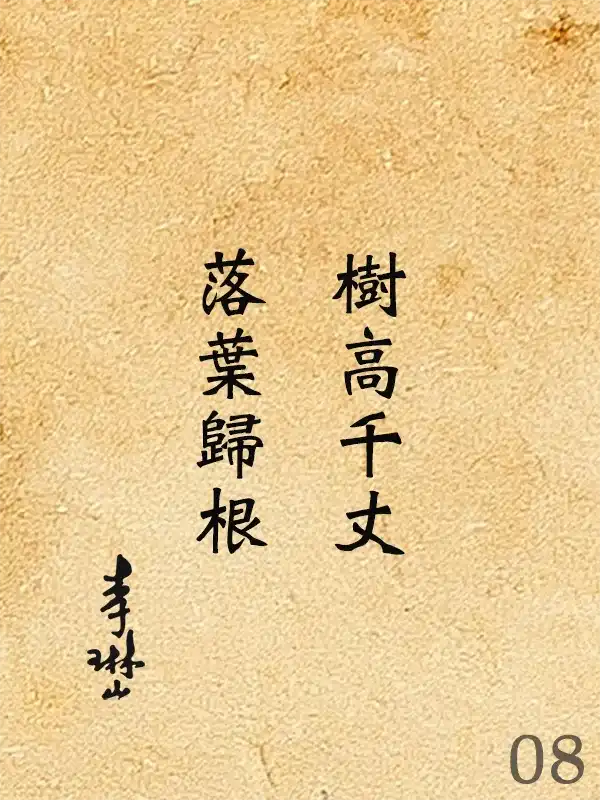 樹高千丈
落葉歸根
李琳山
08